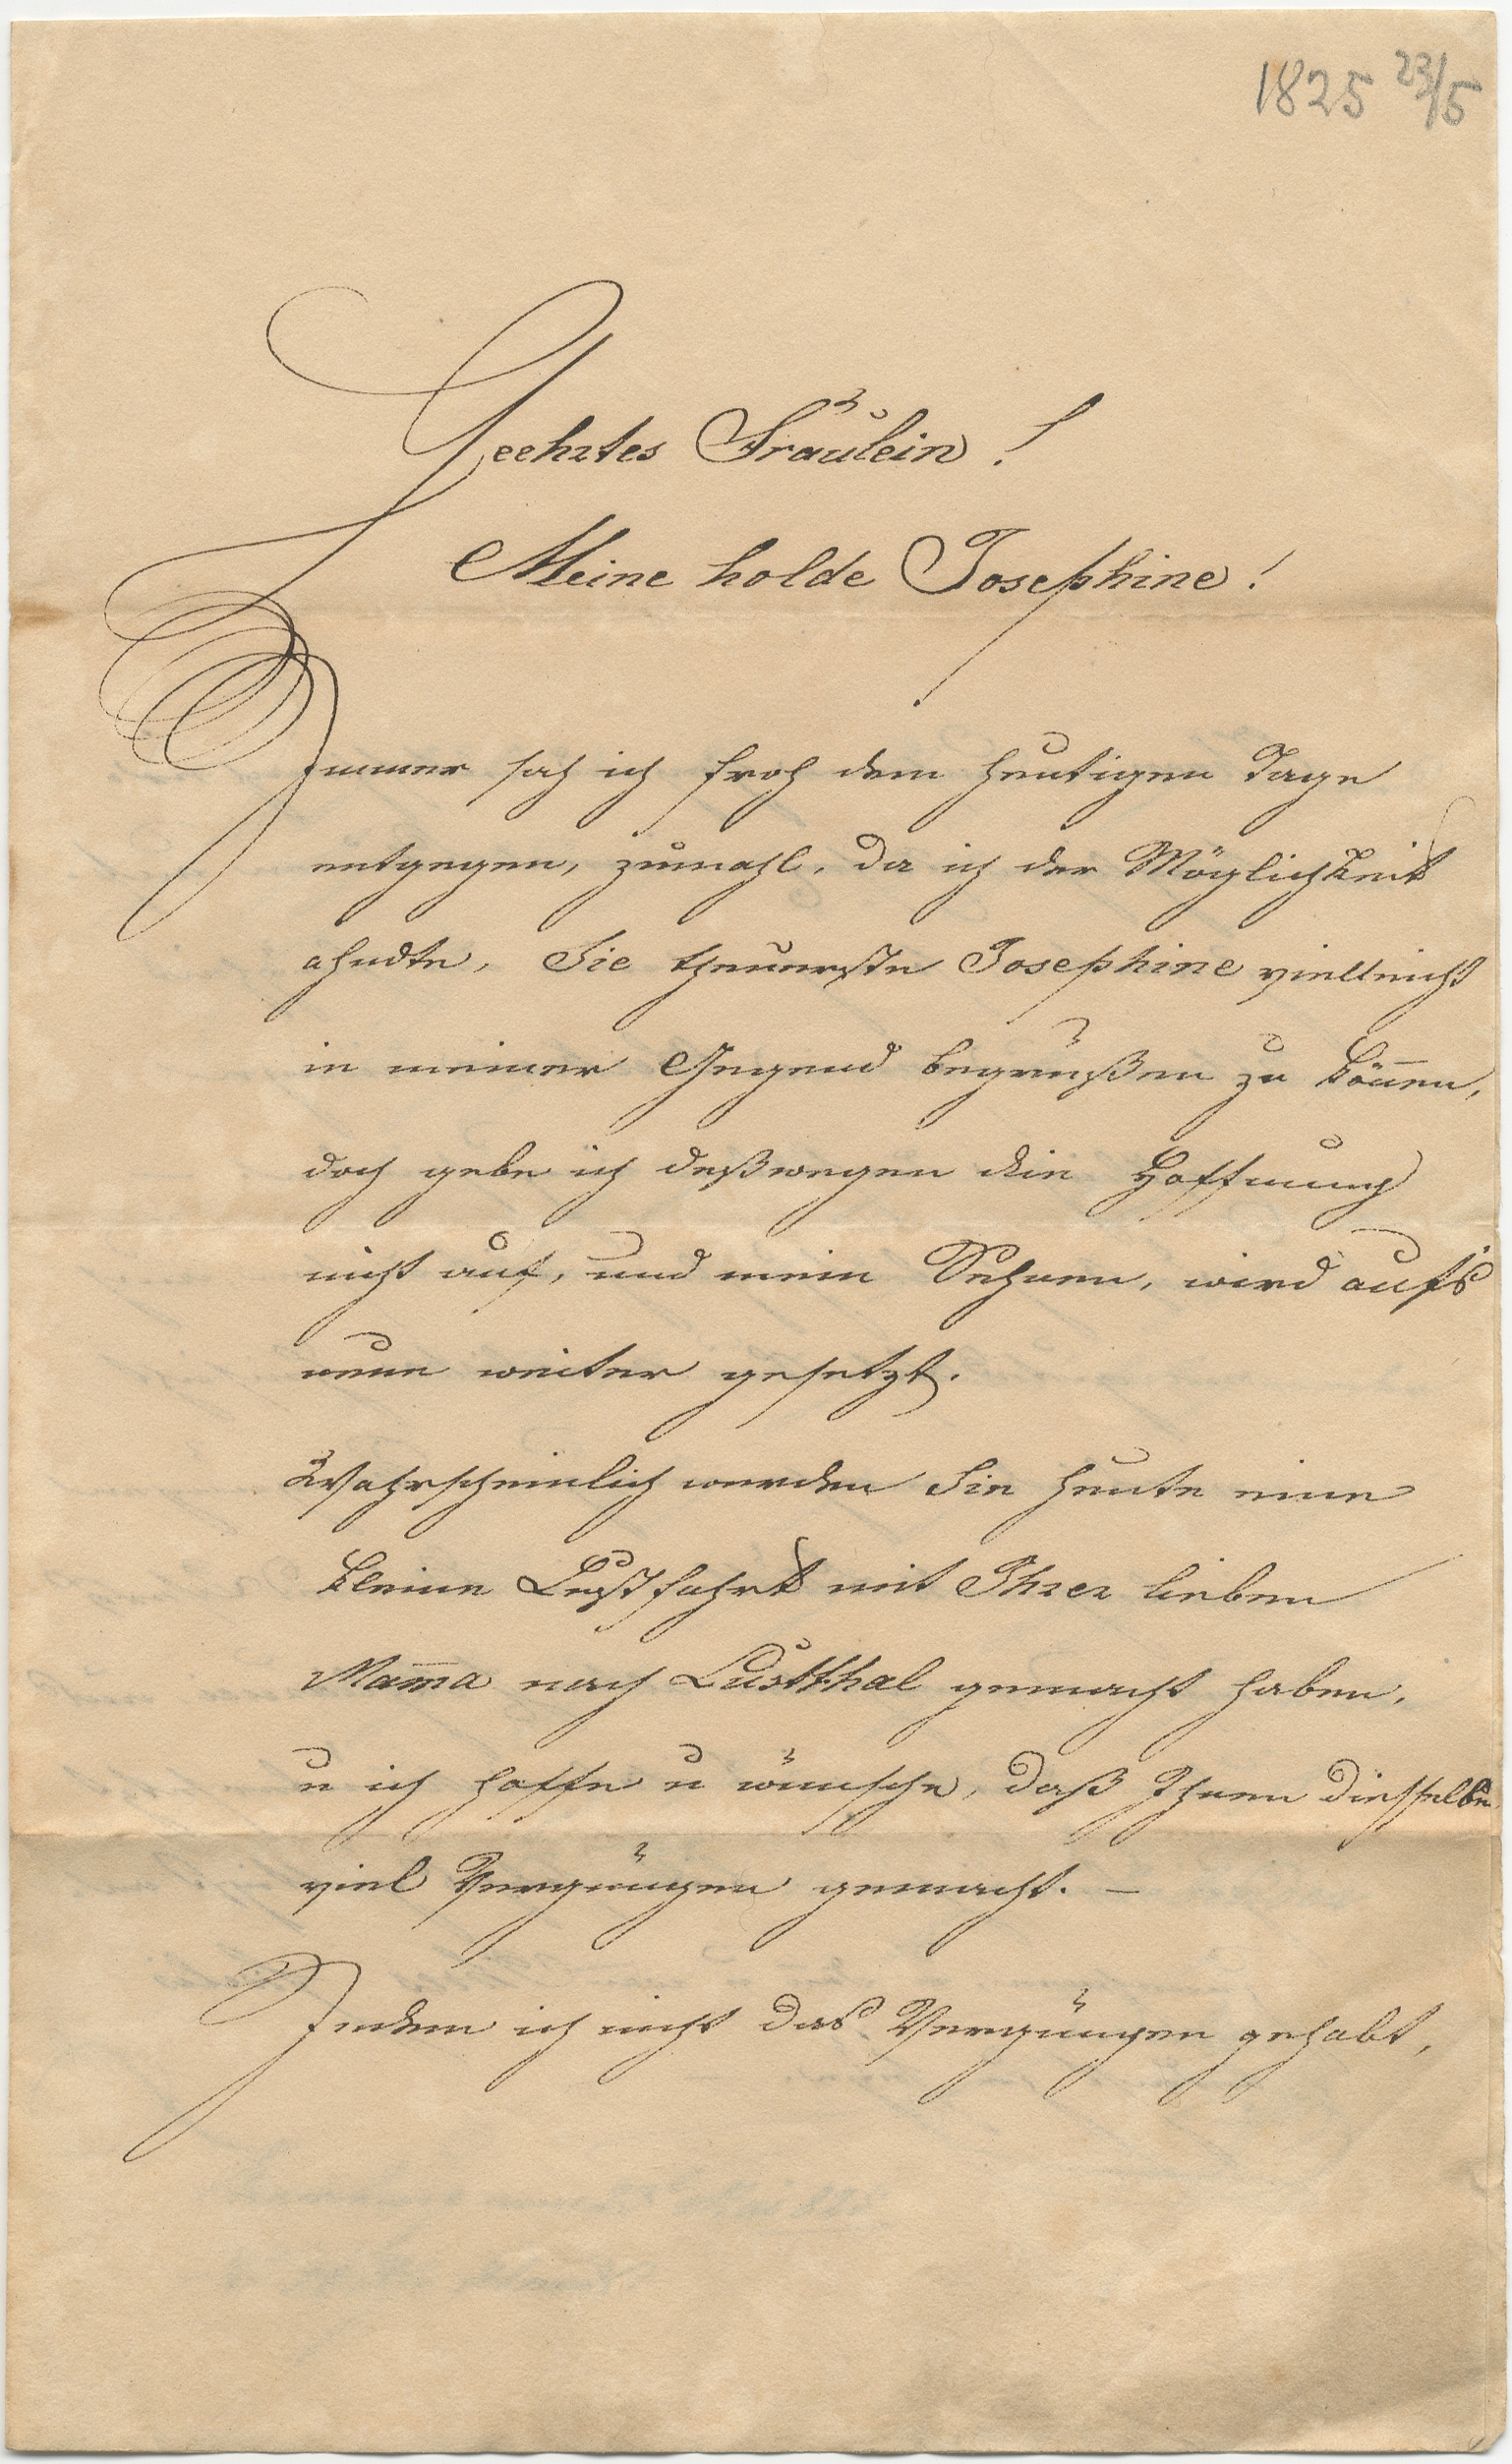 1825 23/5
Geehrtes Fräulein!
Meine holde Josephine!
Immer sah ich froh dem heutigen Tage
entgegen, zumahl, da ich der Möglichkeit
ahndte, Sie theuerste Josephine vielleicht
in meiner Gegend begrüßen zu kön̄en,
doch gebe ich deßwegen die Hoffnung
nicht auf, und mein Sehnen, wird auf's
neue weiter gesetzt.
Wahrscheinlich werden Sie heute eine
kleine Lustfahrt mit Ihrer lieben
Mam̄a nach Lustthal gemacht haben,
u ich hoffe u wünsche, daß Ihnen diesselbe
viel Vergnügen gemacht. —
Indem ich nicht das Vergnügen gehabt,